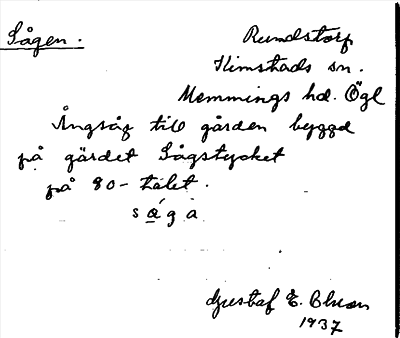 Sågen.
Rundstorp
Kimstads sn.
Memmings hd. Ögl
Ångsåg till gården byggd
på gärdet Sågstycket
på 80-talet.
såga
Gustaf E. Olson
1937